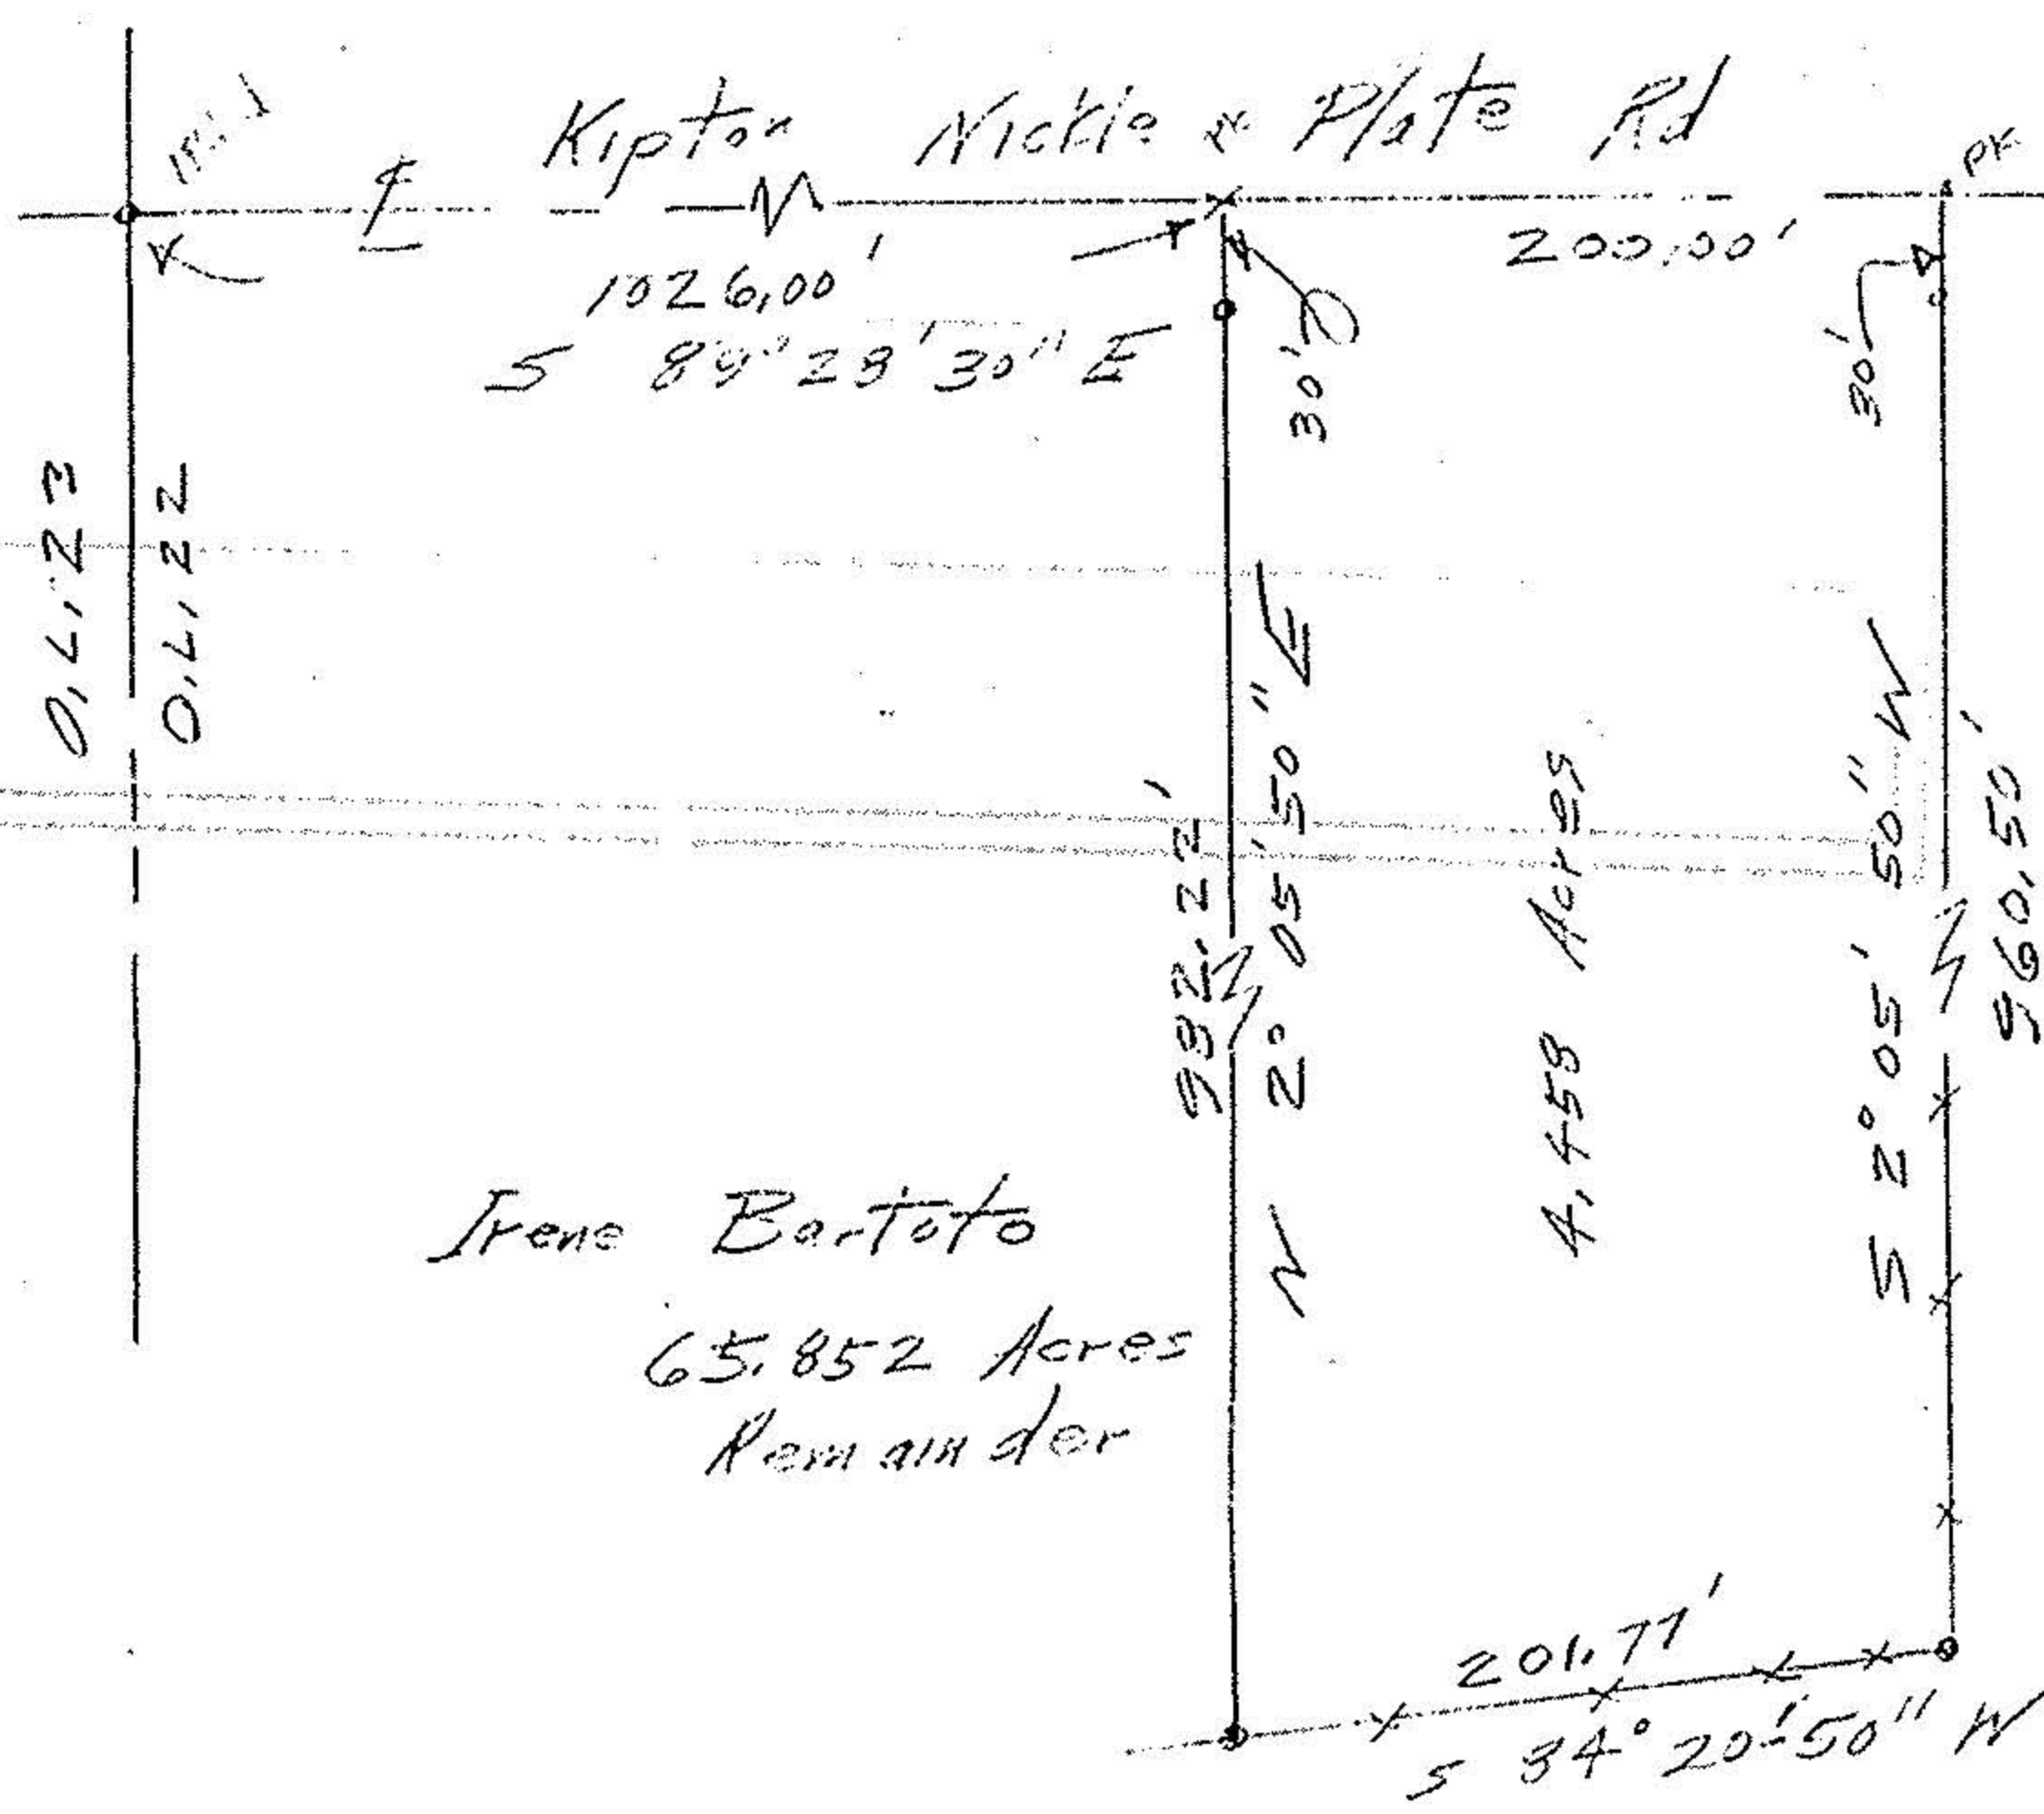 Kipton Nickle Plate Rd
PK
1026.00'
S 89° 28' 30" E
200.00'
30'
30'
O.L. 23
O.L. 22
982.22'
N 2° 05' 50" E
4.458 Acres
S 2° 05' 50" W
960.50'
Irene Bartoto
65.852 Acres
Remainder
201.77'
S 84° 20' 50" W